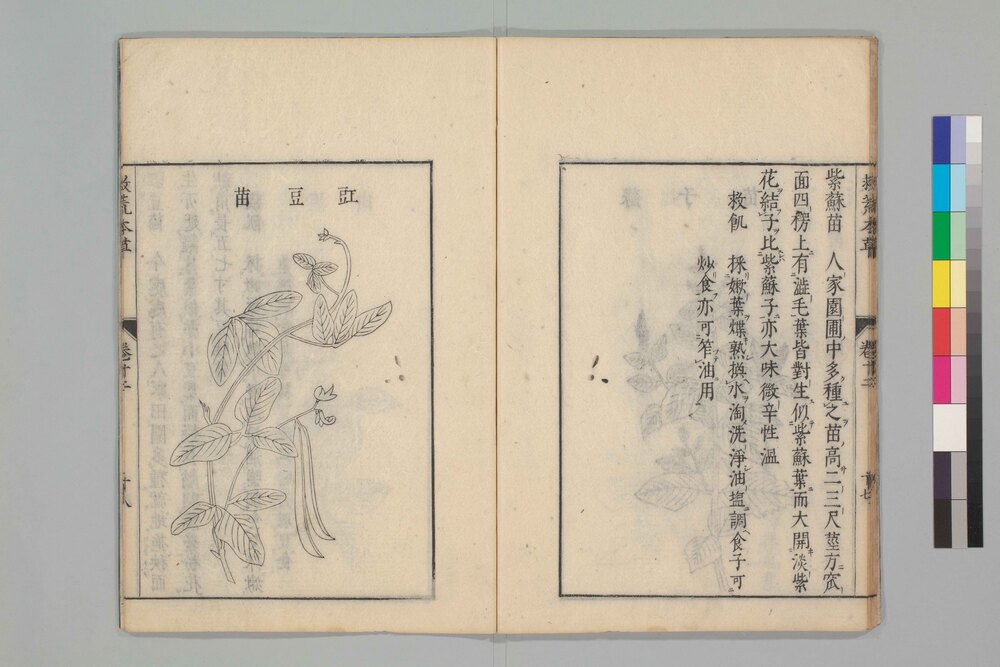 紫蘇苗 人家園圃中多種之苗高二三尺莖方窊
面四楞上有澁毛葉皆對生似紫蘇葉而大開淡紫
花結子比紫蘇子亦大味微辛性溫
救飢 採嫩葉煠熟換水淘洗淨油塩調食子可
炒食亦可笮油用
豇豆苗
救荒本草 卷十二